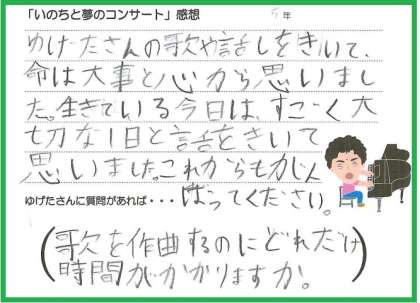 「いのちと夢のコンサート」感想 5年
ゆげたさんの歌や話しをきいて、
命は大事と心から思いまし
た。生きている今日は、すごく大
切な1日と話をきいて
思いました。これからもがん
ばってください。
ゆげたさんに質問があれば・・・
(歌を作曲するのにどれだけ
時間がかかりますか。)